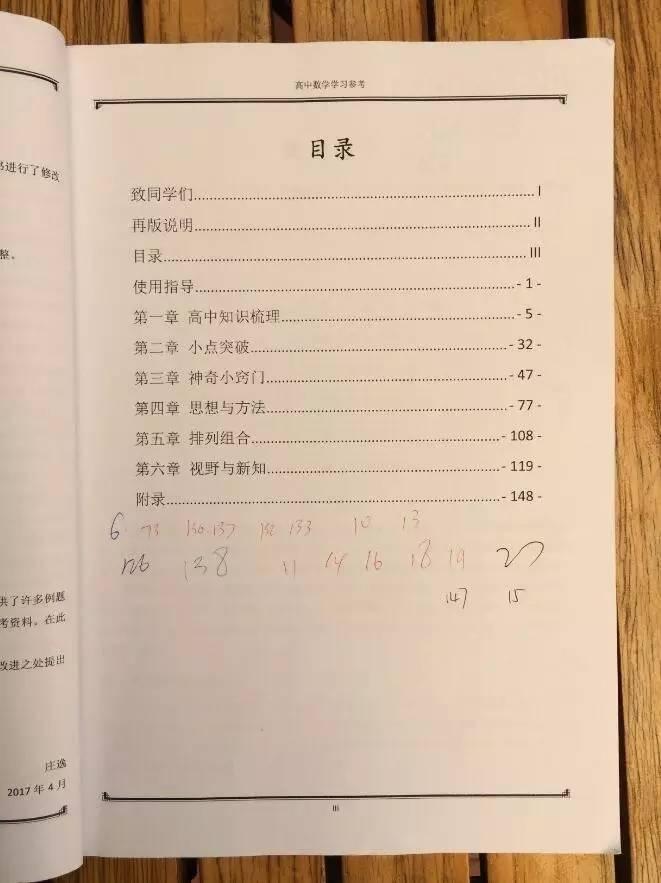 进行了修改
整。
供了许多例题
考资料。在此
改进之处提出
庄逸
2017 年 4 月
高中数学学习参考
目录
致同学们 I
再版说明 II
目录 III
使用指导 - 1 -
第一章 高中知识梳理 - 5 -
第二章 小点突破 - 32 -
第三章 神奇小窍门 - 47 -
第四章 思想与方法 - 77 -
第五章 排列组合 - 108 -
第六章 视野与新知 - 119 -
附录 - 148 -
6 73 130 137 132 133 10 13
126 138 11 14 16 18 19
147 15
III